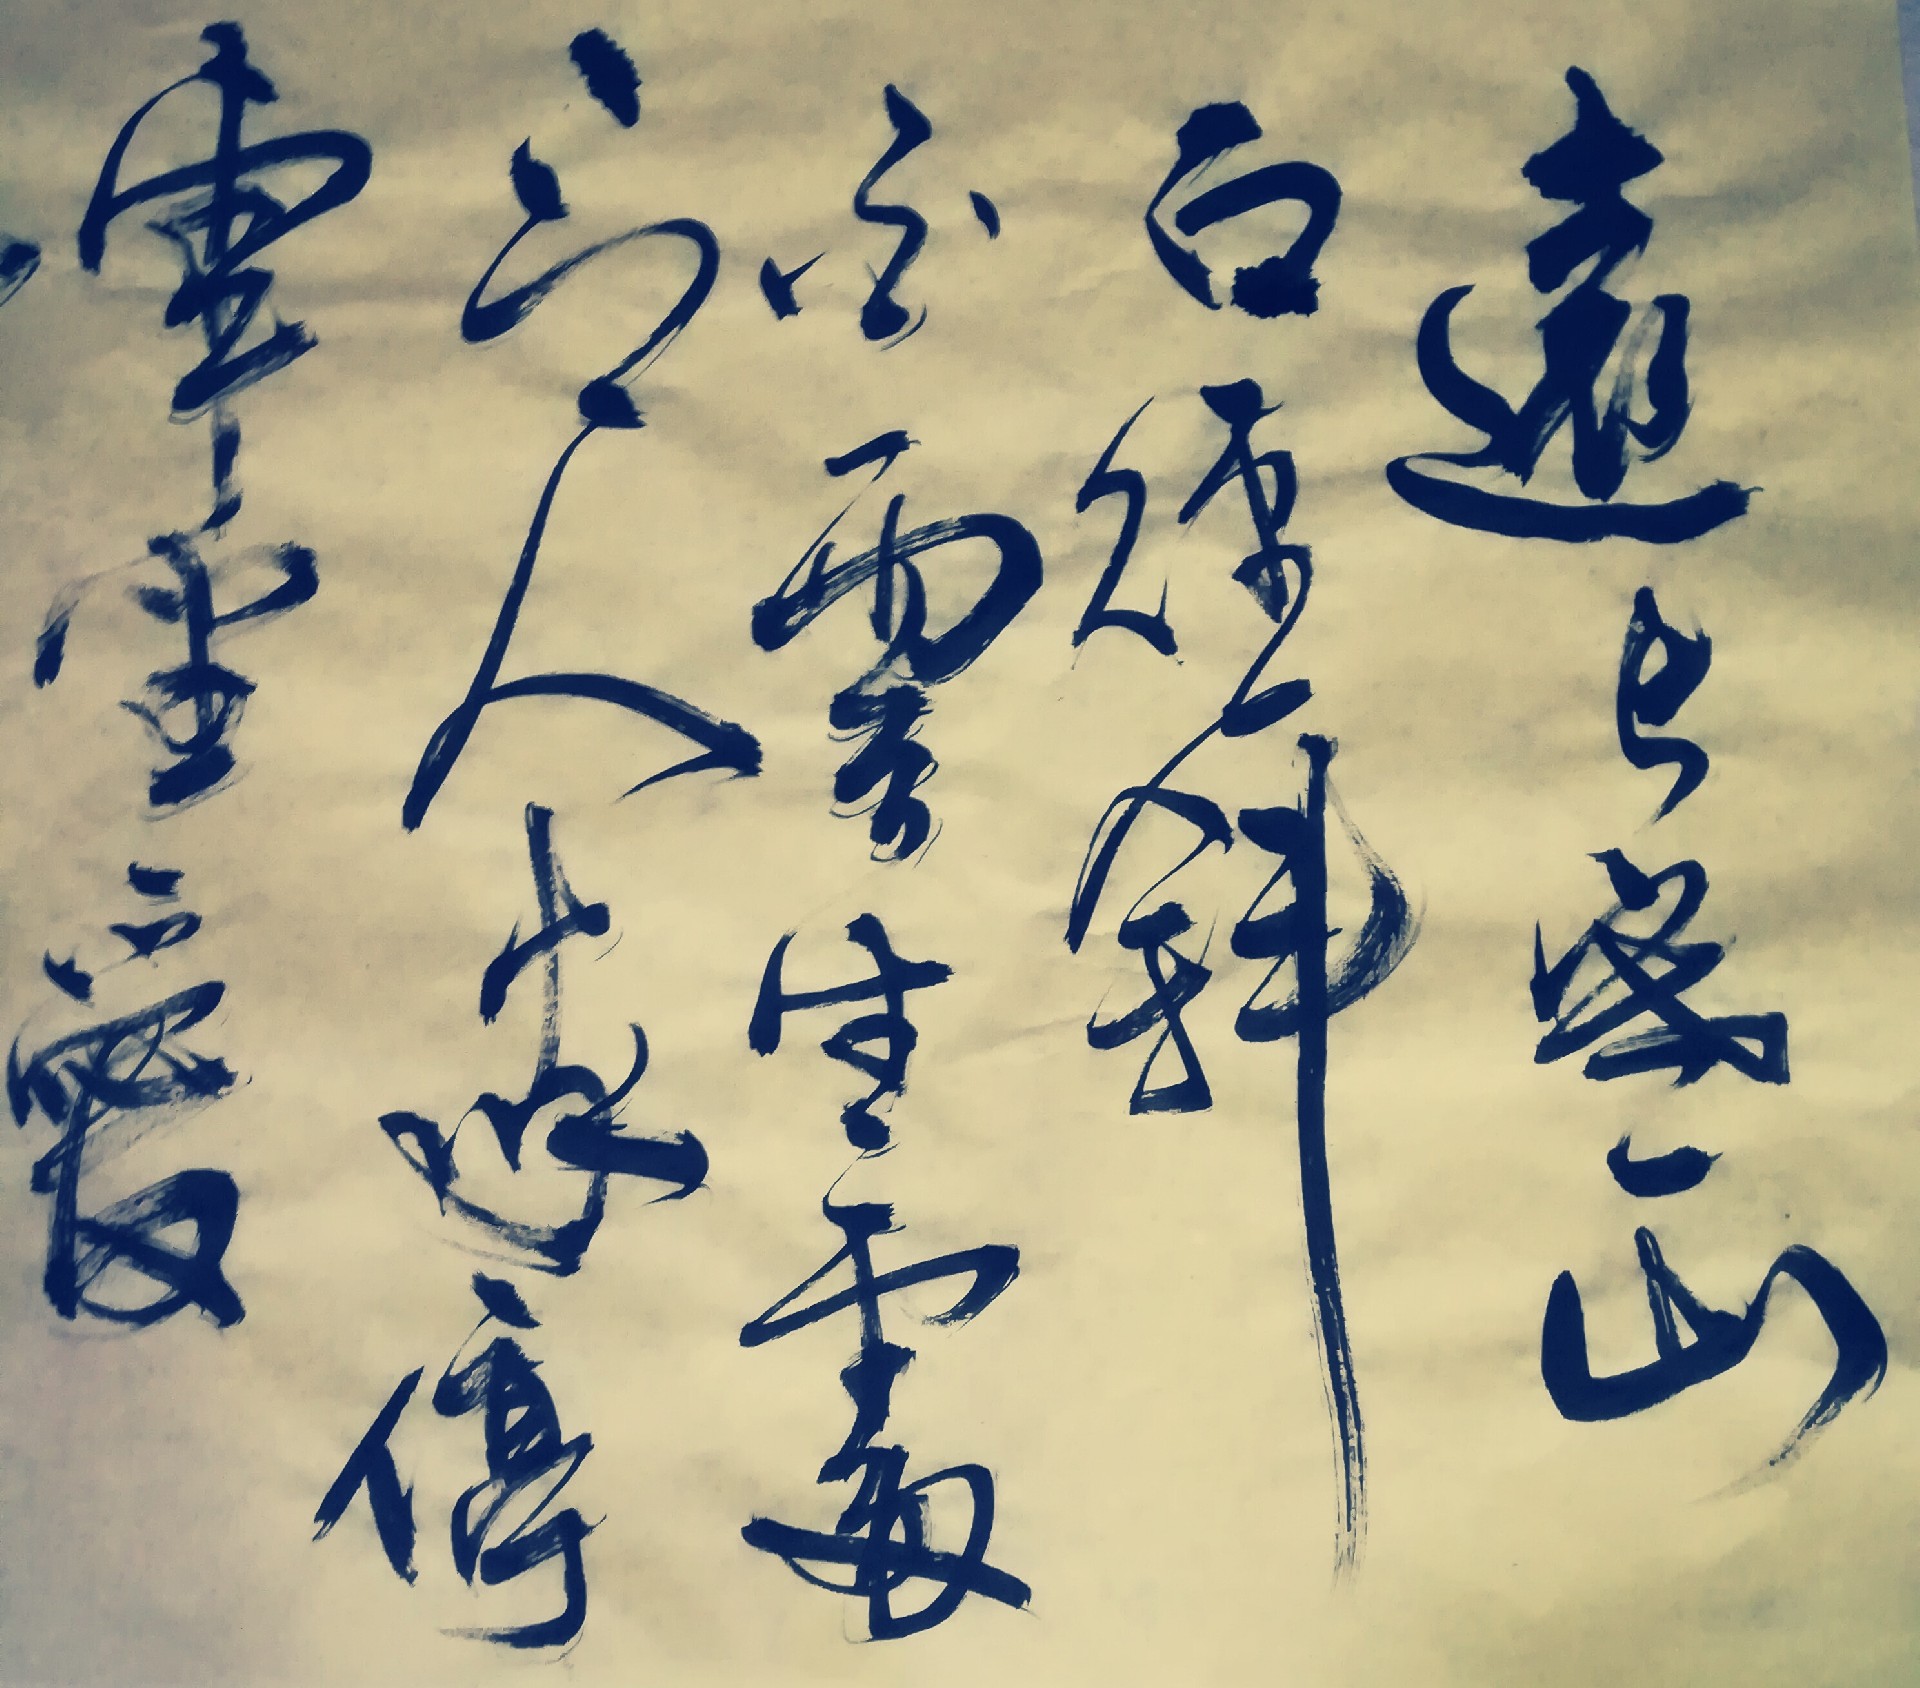 遠上寒山
石徑斜
白雲生處
有人家停
車坐愛